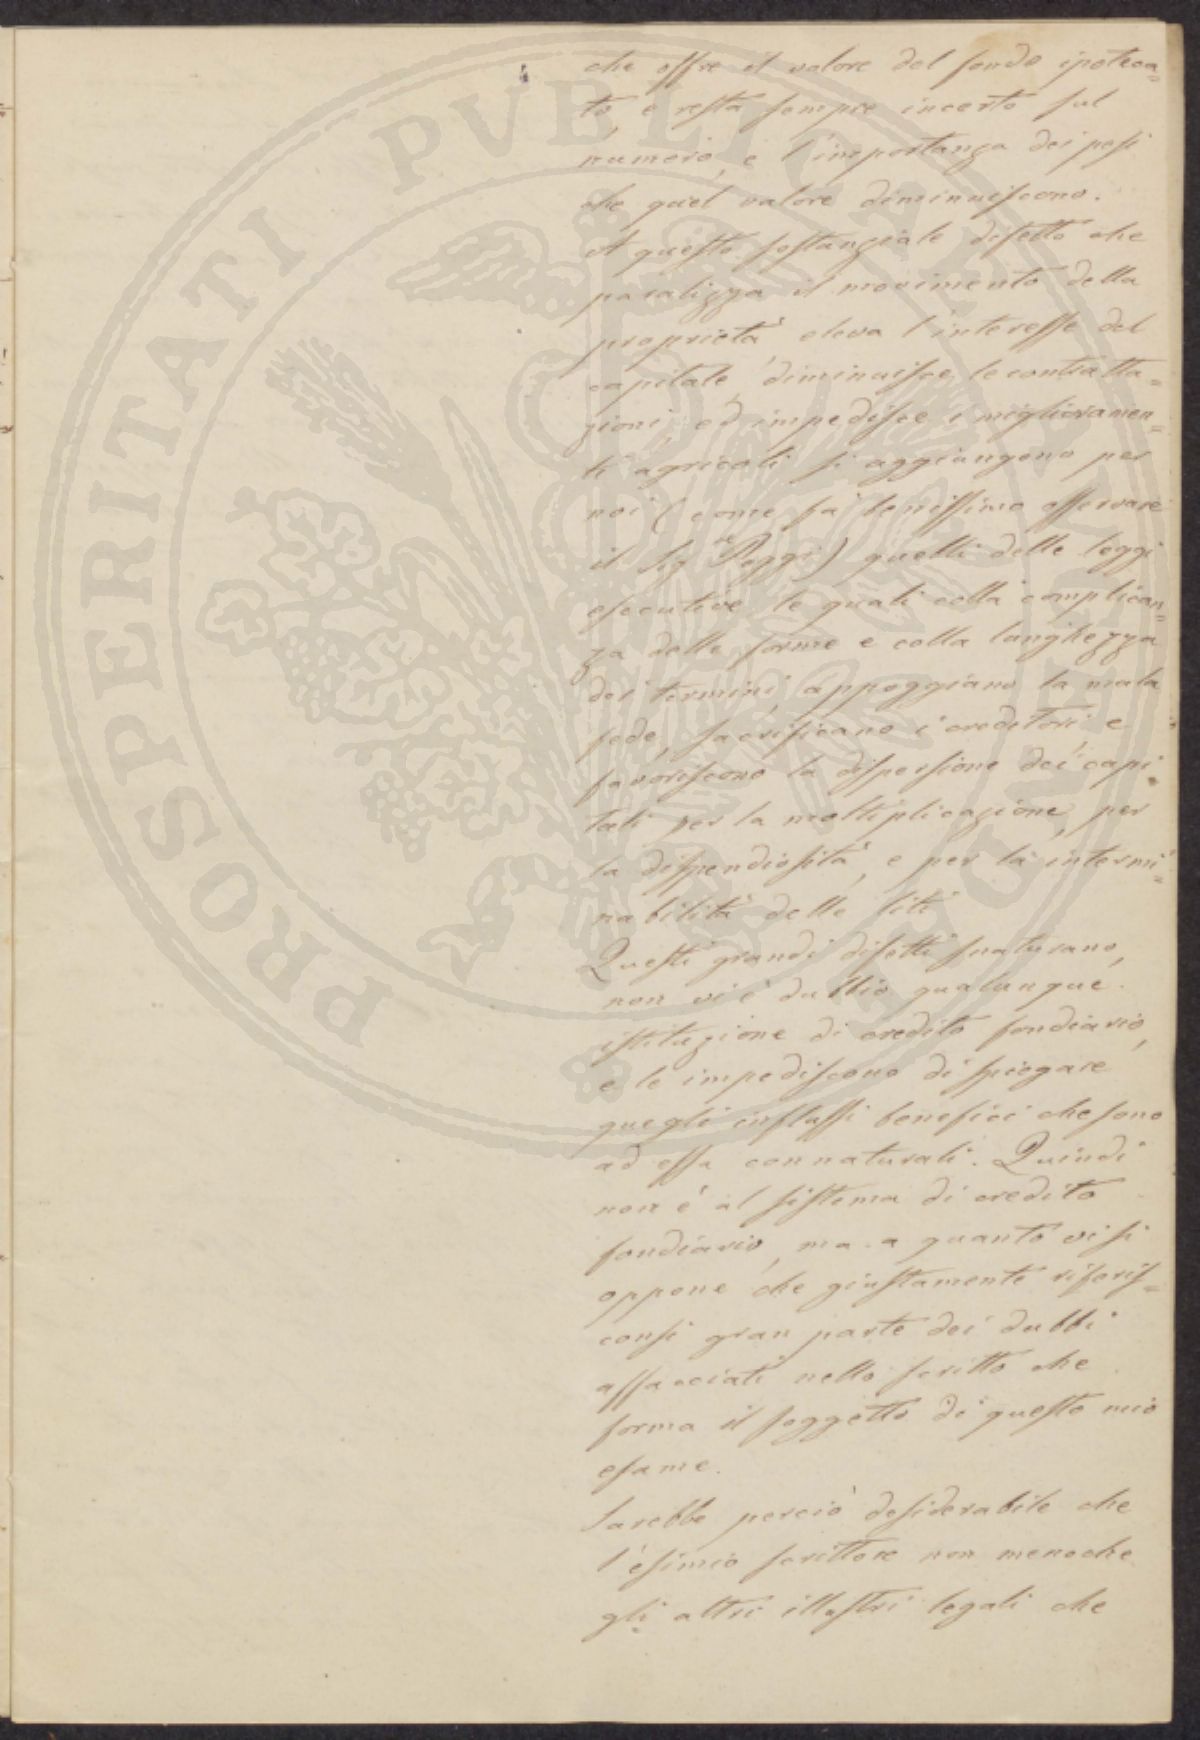 che offre il valore del fondo ipoteca=
to, e resta sempre incerto sul
numero, e l'importanza dei pesi
che quel valore diminuiscono.
A questo sostanziale difetto che
paralizza il movimento della
proprietà eleva l'interesse del
capitale, diminuisce le contratta=
zioni, ed impedisce i miglioramen=
ti agricoli si aggiungono per
noi (come fa benissimo osservare
il Sig.re Poggi) quelli delle leggi
esecutive le quali colla complican=
za delle forme e colla lunghezza
dei termini, appoggiano la mala
fede, sacrificano i creditori e
favoriscono la dispersione dei capi=
tali per la moltiplicazione, per
la dispendiosità, e per la intermi=
nabilità delle liti
Questi grandi difetti snaturano,
non vi è dubbio qualunque
istituzione di credito fondiario,
e le impediscono di spiegare
quegli influssi benefici che sono
ad essa connaturali. Quindi
non è al sistema di credito
fondiario, ma a quanto vi si
oppone che giustamente riferis=
consi gran parte dei dubbi
affacciati nello scritto che
forma il soggetto di questo mio
esame.
Sarebbe perciò desiderabile che
l'esimio scrittore non meno che
gli altri illustri legali che
PROSPERITATI PUBLICAE